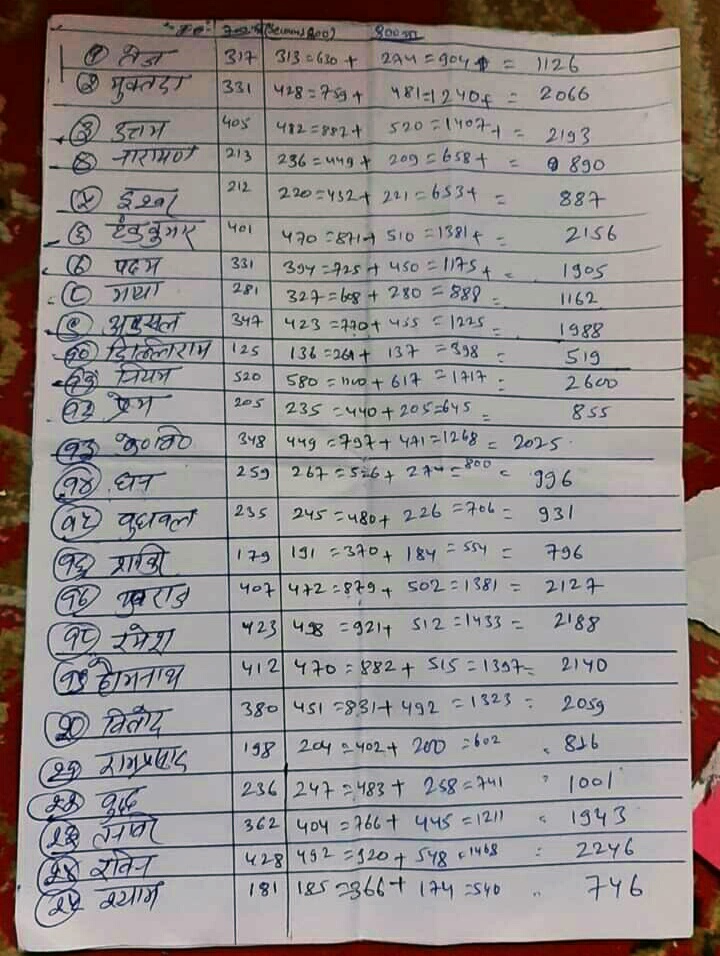 (१) तेज 317 313=630+ 274=904+ = 1126
(२) मुक्तडा 331 428=759+ 481=1240+ = 2066
(३) उत्तम 405 482=887+ 520=1407+ = 2193
(४) नारायण 213 236=449+ 209=658+ = 890
(५) ईश्वर 212 220=432+ 221=653+ = 887
(६) इन्द्रकुमार 401 470=871+ 510=1381+ = 2156
(७) पदम 331 394=725+ 450=1175+ = 1905
(८) गया 281 327=608+ 280=888 = 1162
(९) 347 423=770+ 455=1225 = 1988
(१०) डिल्लीराम 125 136=261+ 137=398 = 519
(११) नियम 520 580=1100+ 617=1717= 2600
(१२) प्रेम 205 235=440+205=645 = 855
(१३) 348 449=797+ 471=1268 = 2025
(१४) धन 259 267=526+ 274=800 = 996
(१५) वुधवल 235 245=480+ 226=706= 931
(१६) शक्ति 179 191=370+ 184=554 = 796
(१७) युवराज 407 472=879+ 502=1381 = 2127
(१८) रमेश 423 498=921+ 512=1433= 2188
(१९) होमनाथ 412 470=882+ 515=1397= 2140
(२०) विनोद 380 451=831+492=1323 = 2059
(२१) रामप्रसाद 198 204=402+ 200=602 = 816
(२२) वुद्ध 236 247=483+ 258=741 = 1001
(२३) 362 404=766+ 445=1211 = 1943
(२४) रविन 428 492=920+ 548=1468 = 2246
(२५) श्याम 181 185=366+ 174=540 = 746